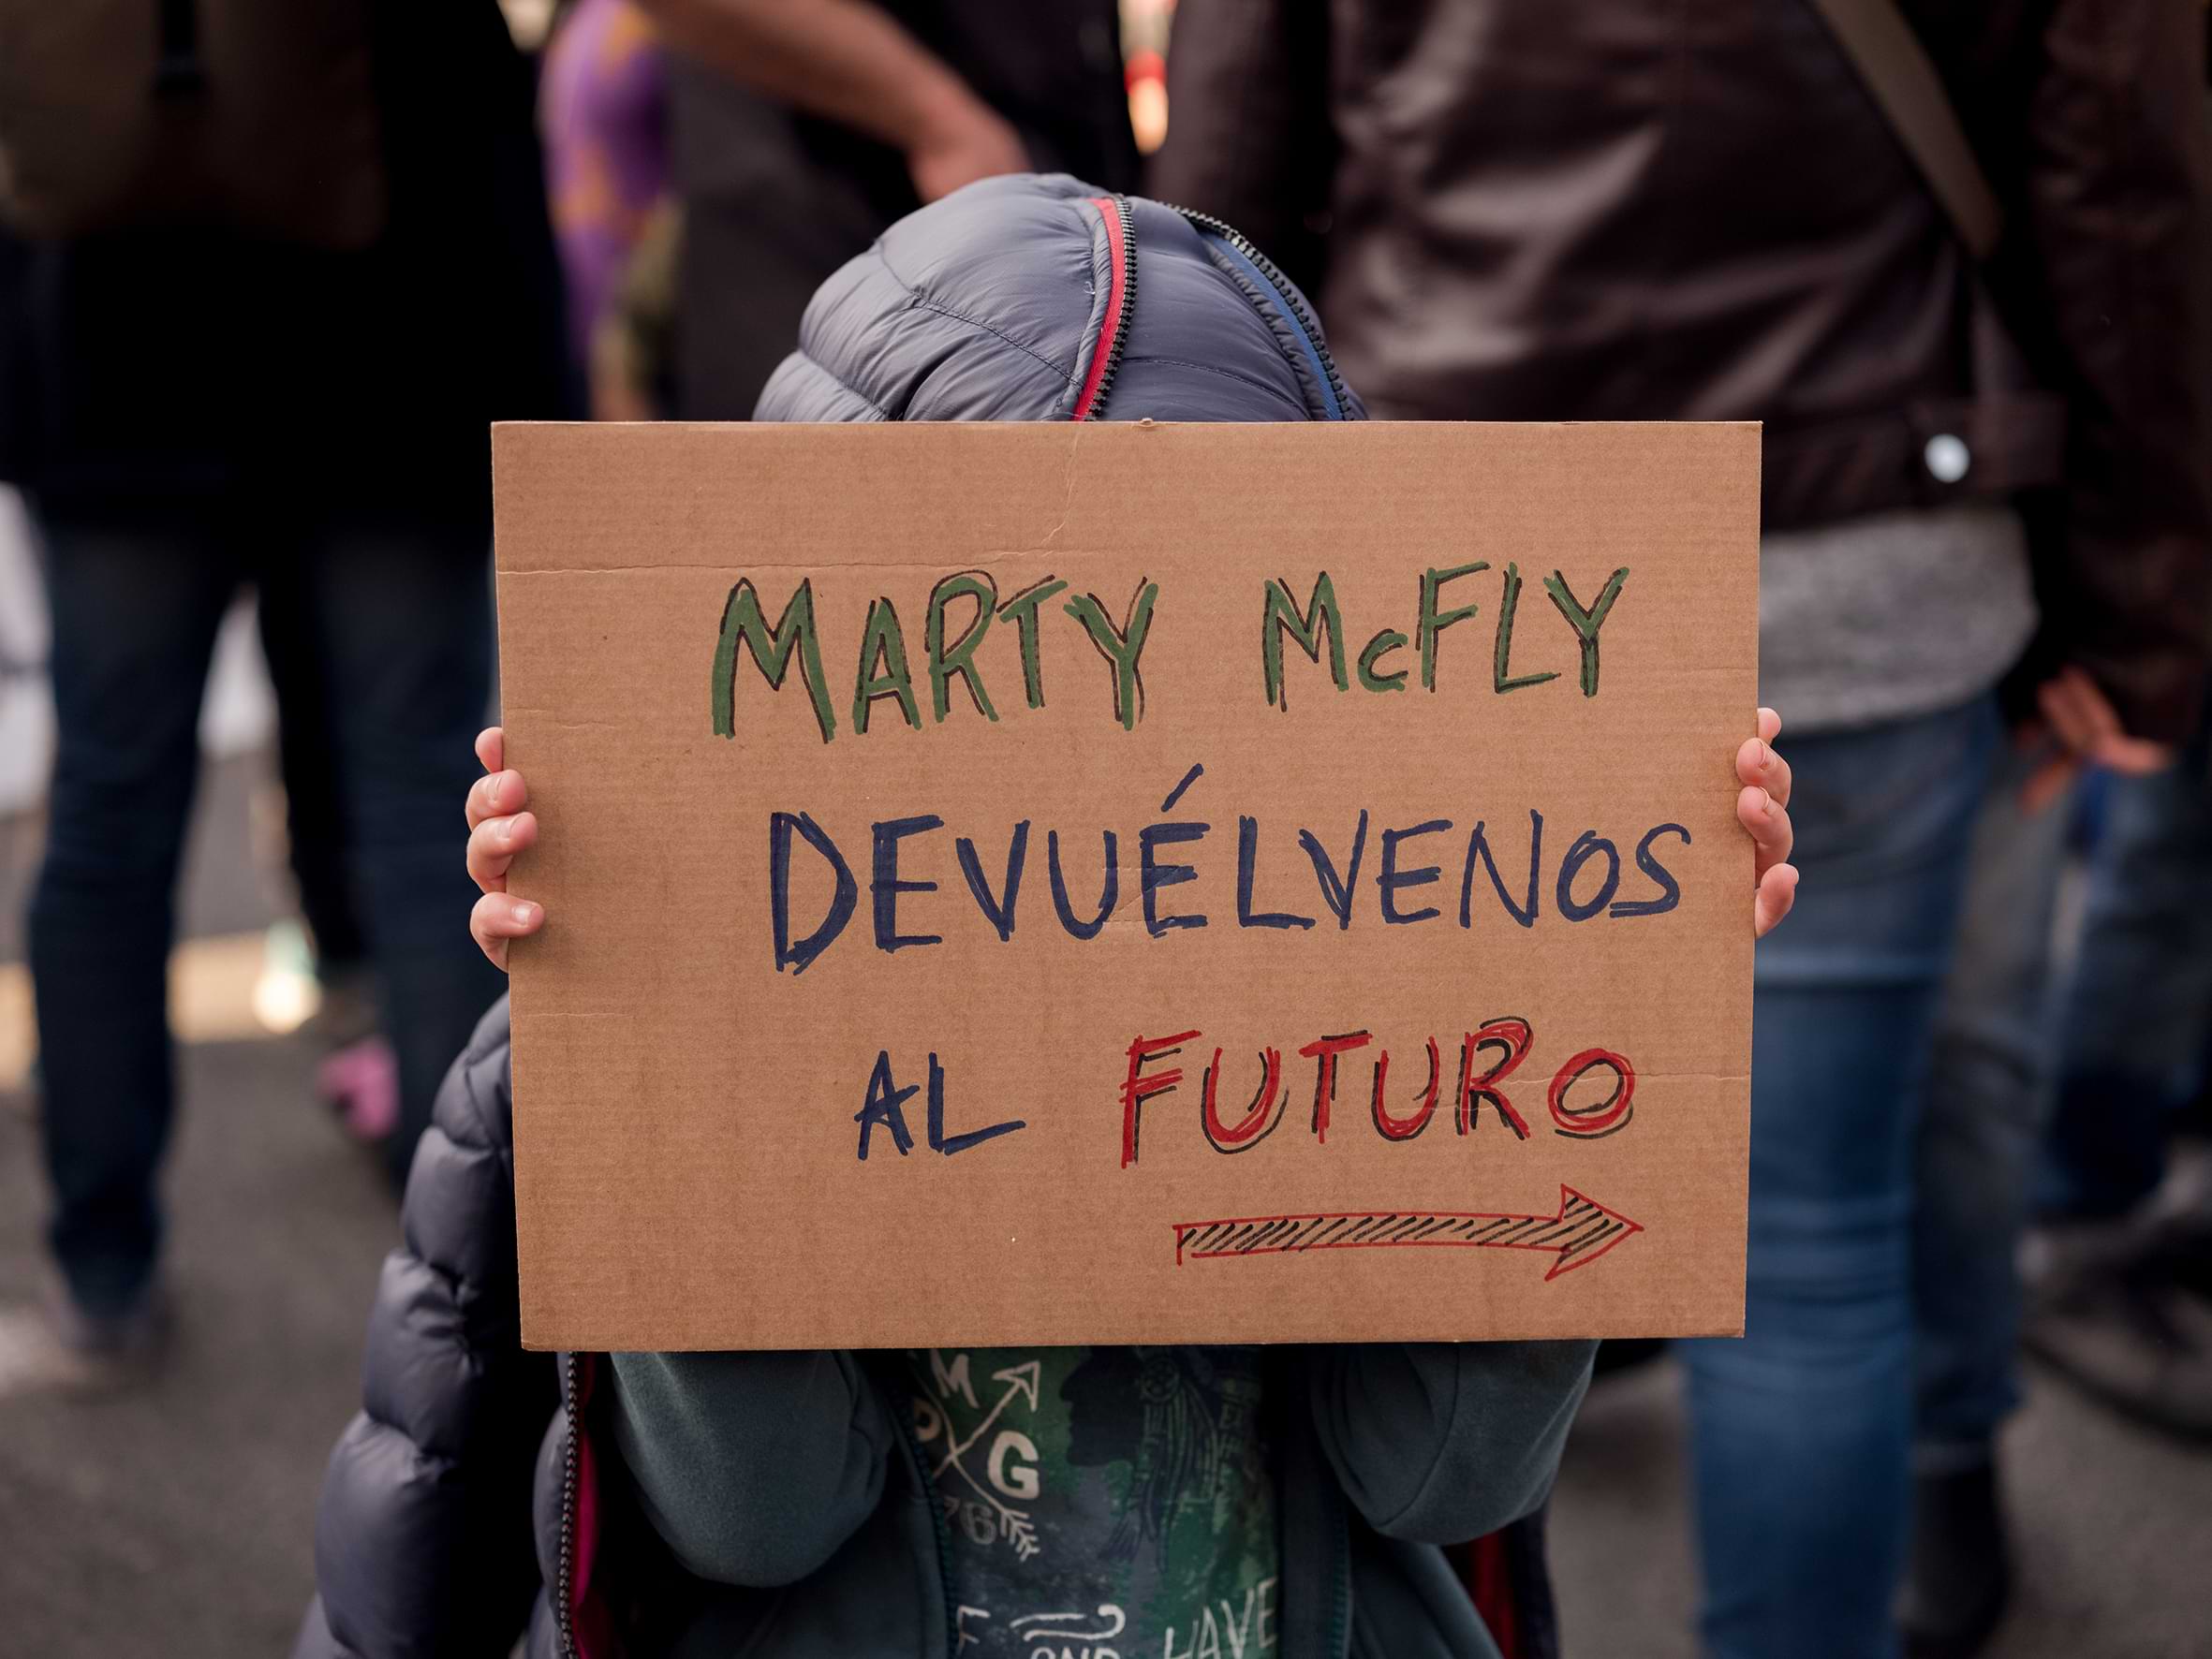 MARTY McFLY
DEVUÉLVENOS
AL FUTURO
M
G
76
HAVE